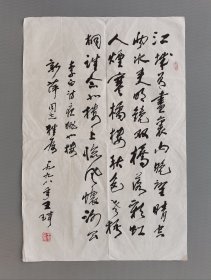 江城如畫裏山晚望晴空
兩水夾明鏡雙橋落彩虹
人煙寒橘柚秋色老梧
桐誰念北樓上臨風懷謝公
李白詩 北樓
新萍同志雅屬 一九九八年王